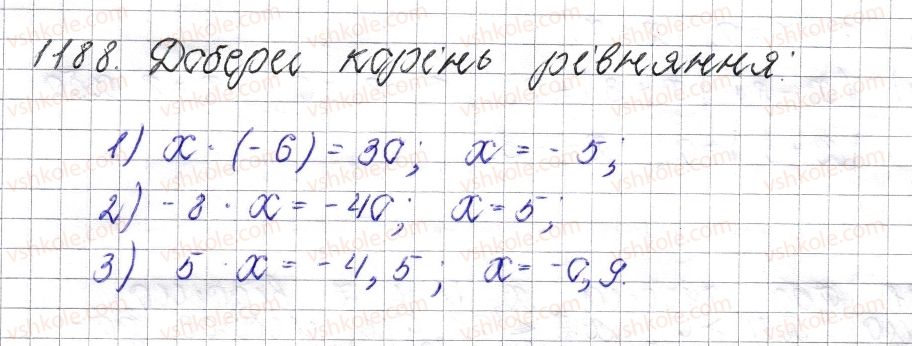 1188. Добери корінь рівняння:
1) x · (-6) = 30; x = -5;
2) -8 · x = -40; x = 5;
3) 5 · x = -4,5; x = -0,9.